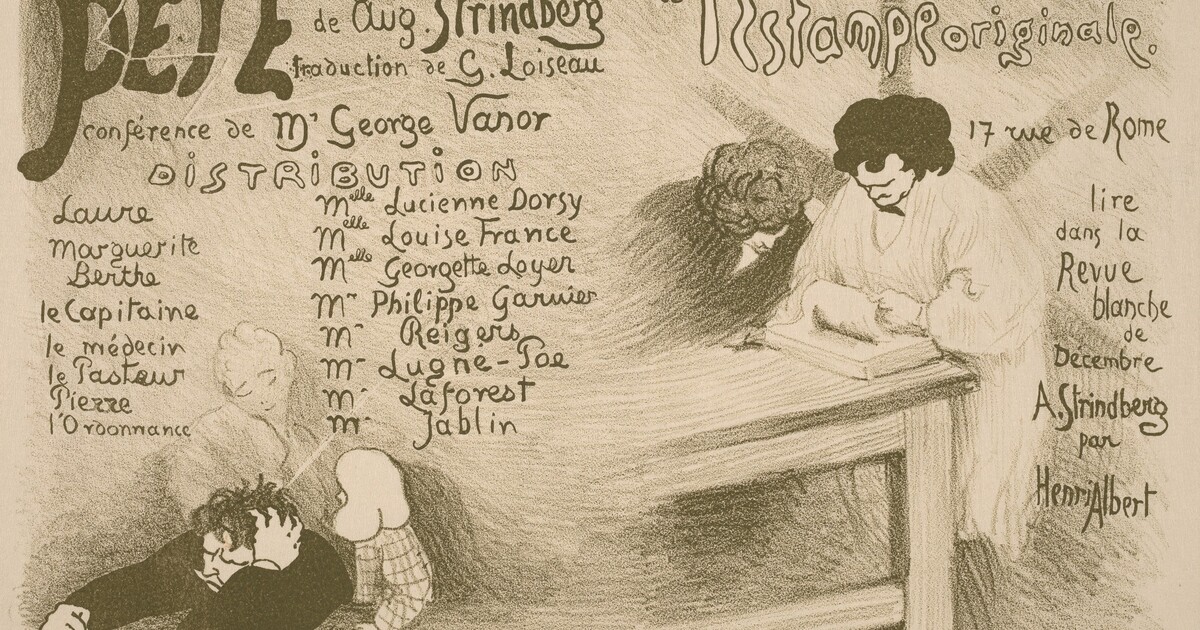 de Aug. Strindberg
traduction de G. Loiseau
conférence de Mr George Vanor
DISTRIBUTION
Laure Melle Lucienne Dorsy
Marguerite Melle Louise France
Berthe Melle Georgette Loyer
le Capitaine Mr Philippe Garnier
le médecin Mr Reigers
le Pasteur Mr Lugné-Poe
Pierre Mr Laforest
l'Ordonnance Mr Jablin
l'Estampe originale.
17 rue de Rome
lire
dans la
Revue
blanche
de
Décembre
A. Strindberg
par
Henri Albert